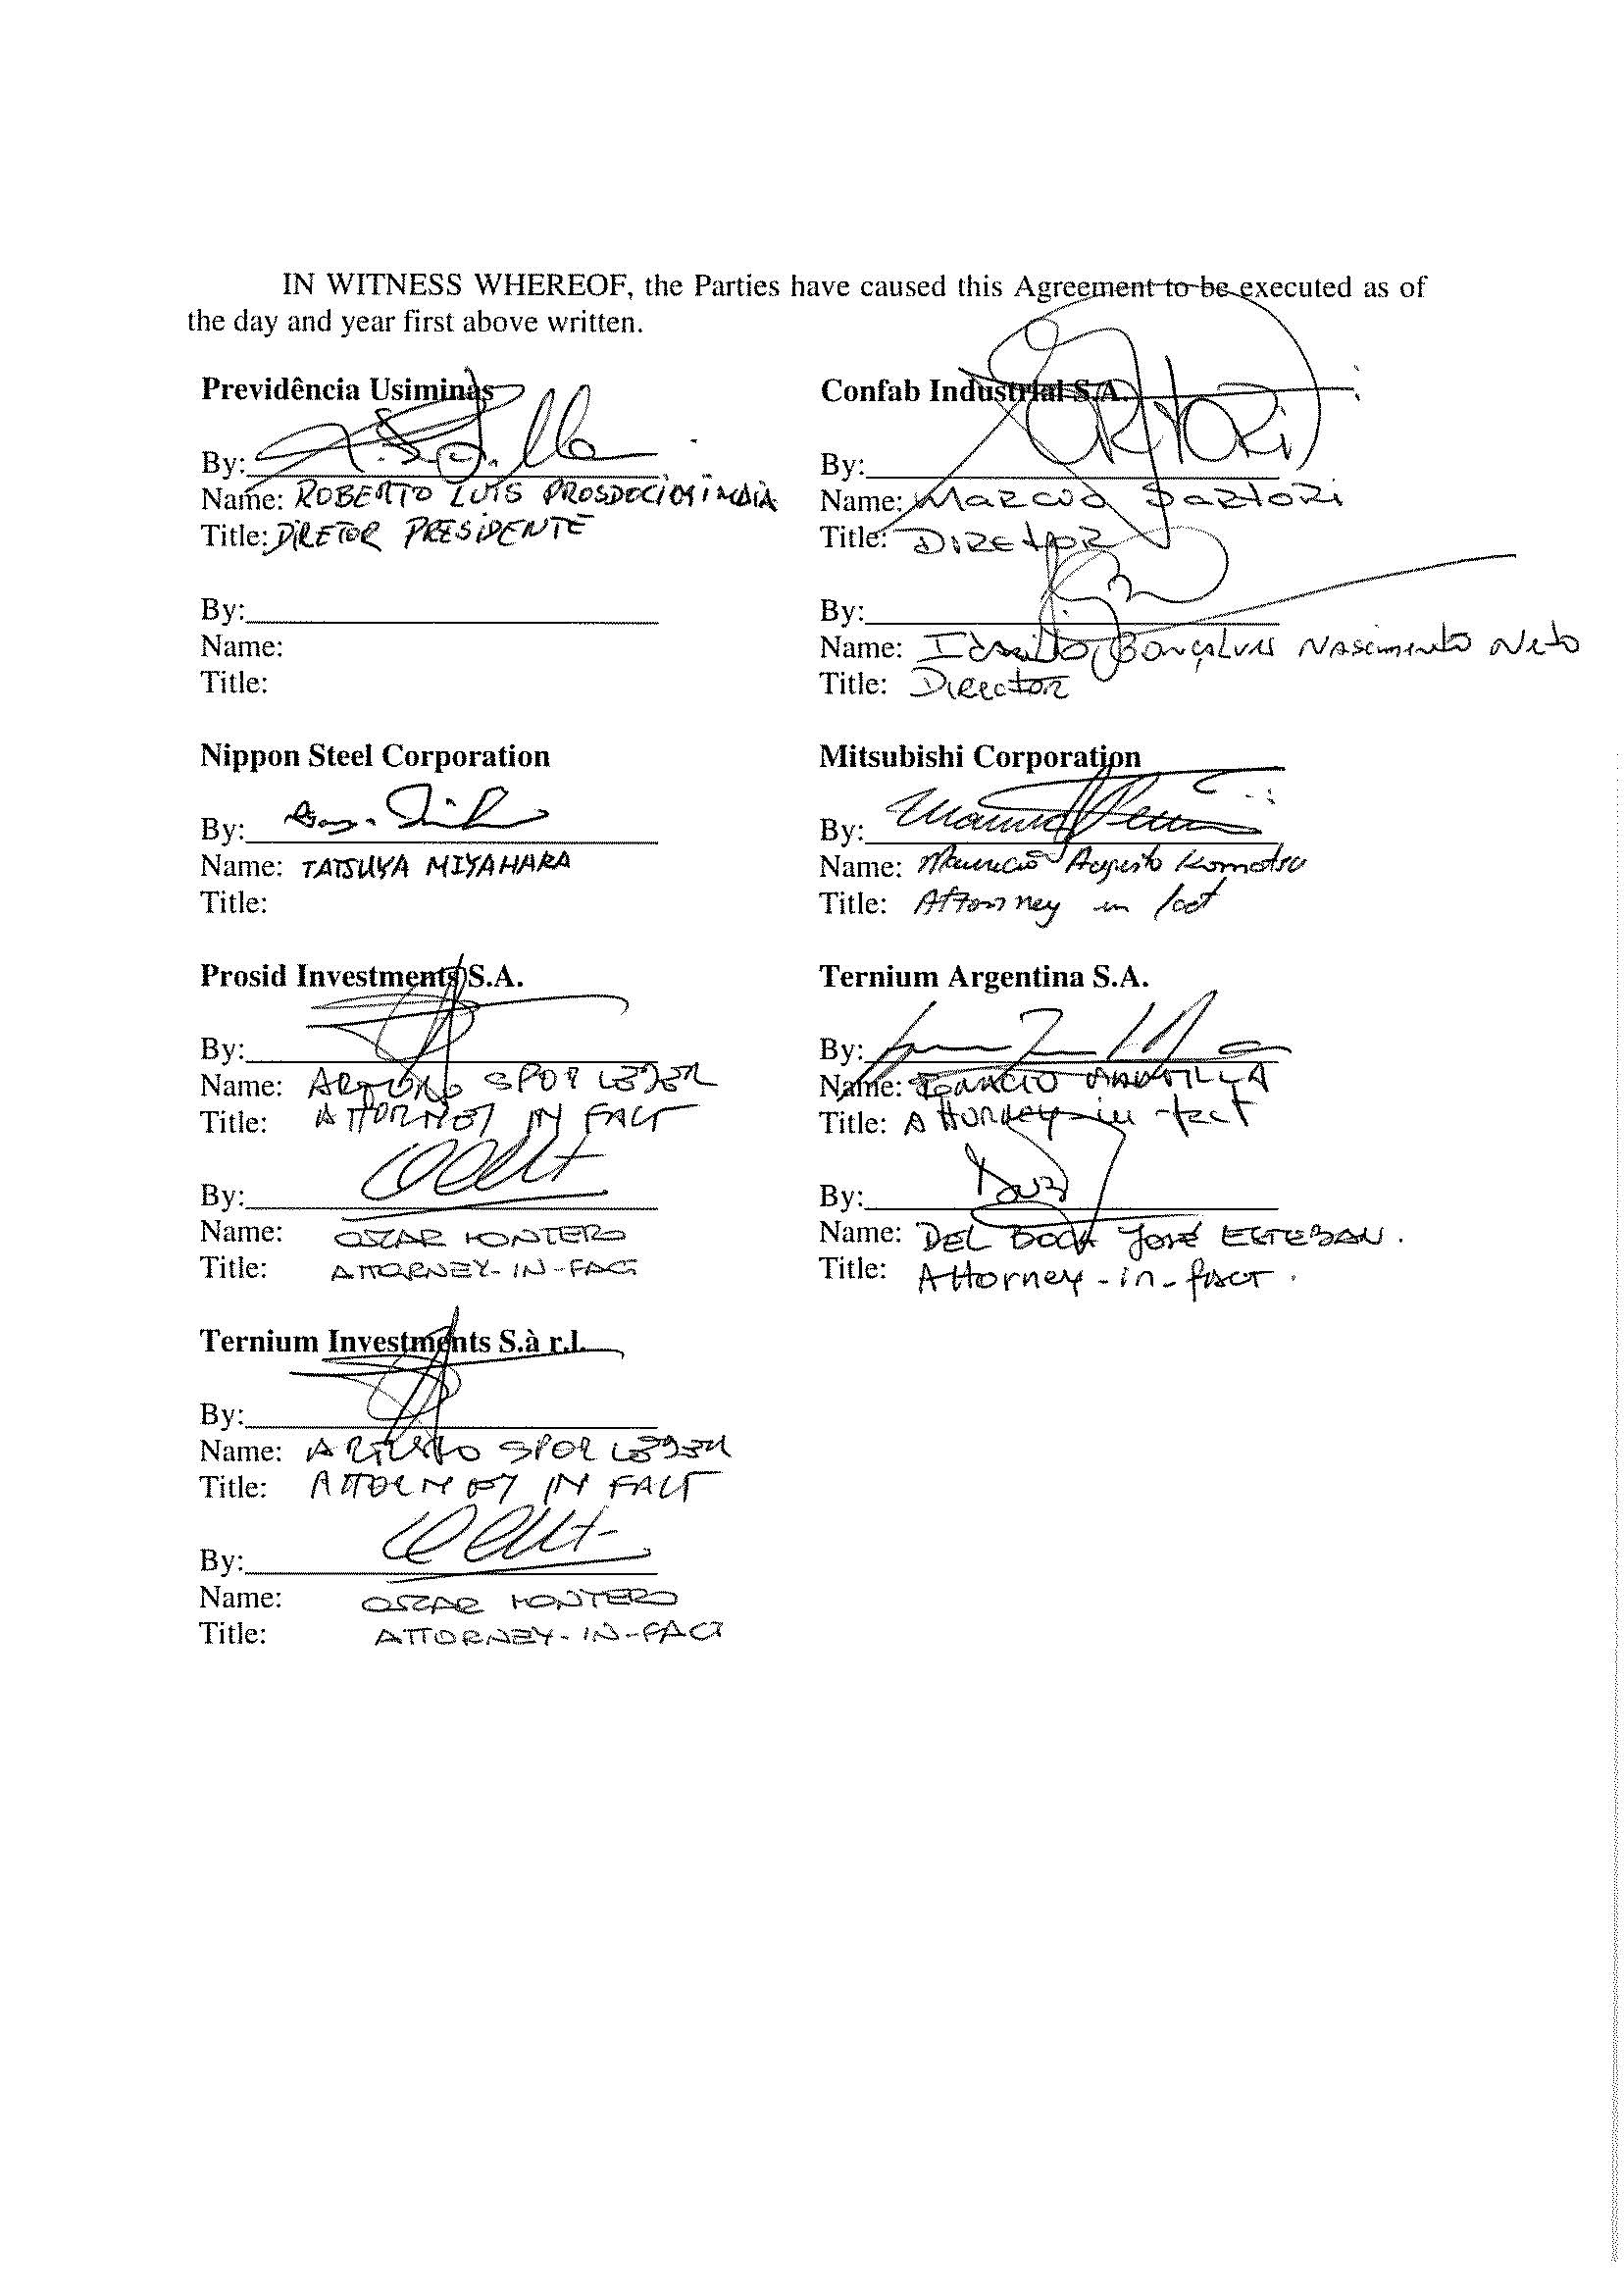 IN WITNESS WHEREOF, the Parties have caused this Agreement to be executed as of
the day and year first above written.
Previdência Usiminas
By:
Name: ROBERTO LUIS PROSDOCIMI MAIA
Title: DIRETOR PRESIDENTE
By:
Name:
Title:
Confab Industrial S.A.
By: SARTORI
Name: MARCIO SARTORI
Title: DIRETOR
By:
Name: Gonçalves Nascimento Neto
Title: Director
Nippon Steel Corporation
By:
Name: TATSUYA MIYAHARA
Title:
Mitsubishi Corporation
By:
Name: Mauricio Augusto Komatsu
Title: Attorney in fact
Prosid Investments S.A.
By:
Name: ARTURO SPORLEDER
Title: ATTORNEY IN FACT
By:
Name: OSCAR MONTERO
Title: ATTORNEY-IN-FACT
Ternium Argentina S.A.
By:
Name: IGNACIO
Title: Attorney-in-fact
By:
Name: DEL BOCA JOSÉ ESTEBAN.
Title: Attorney-in-fact.
Ternium Investments S.à r.l.
By:
Name: ARTURO SPORLEDER
Title: ATTORNEY IN FACT
By:
Name: OSCAR MONTERO
Title: ATTORNEY-IN-FACT